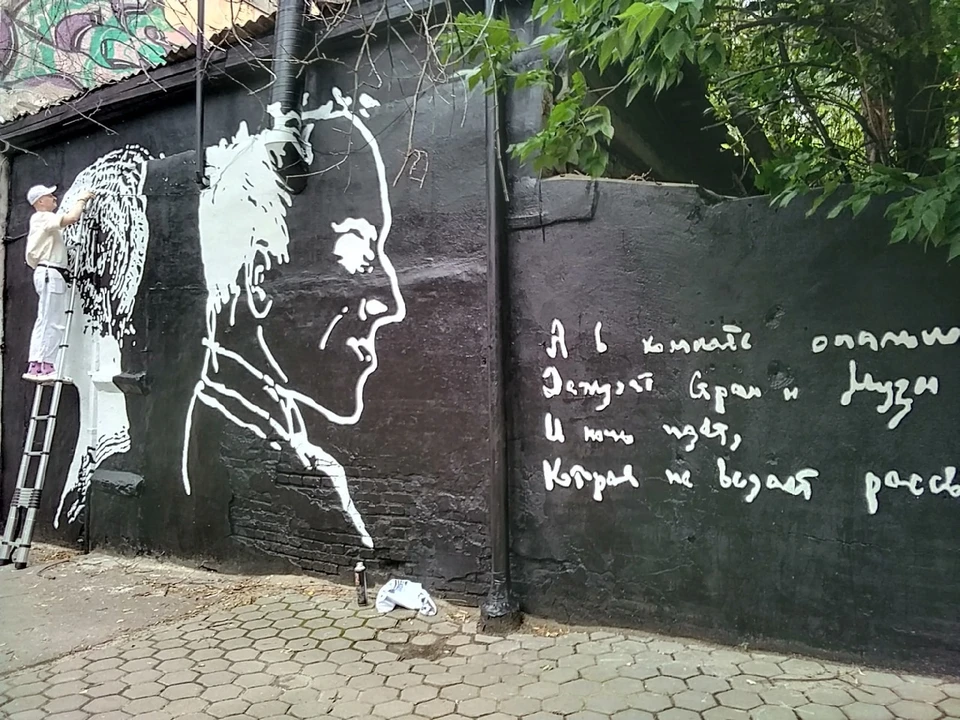 А в комнате опально
Дежурят страх и Муза
И ночь идёт,
Которая не ведает рассв